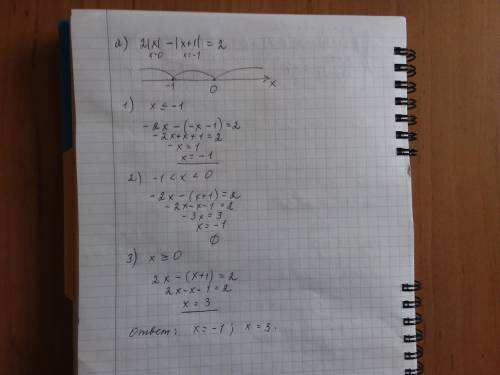 а) 2|x| - |x+1| = 2
x=0 x=-1
-1 0 x
1) x ≤ -1
-2x-(-x-1)=2
-2x+x+1=2
-x=1
x=-1
2) -1 < x < 0
-2x-(x+1)=2
-2x-x-1=2
-3x=3
x=-1
∅
3) x ≥ 0
2x-(x+1)=2
2x-x-1=2
x=3
Ответ: x=-1; x=3.